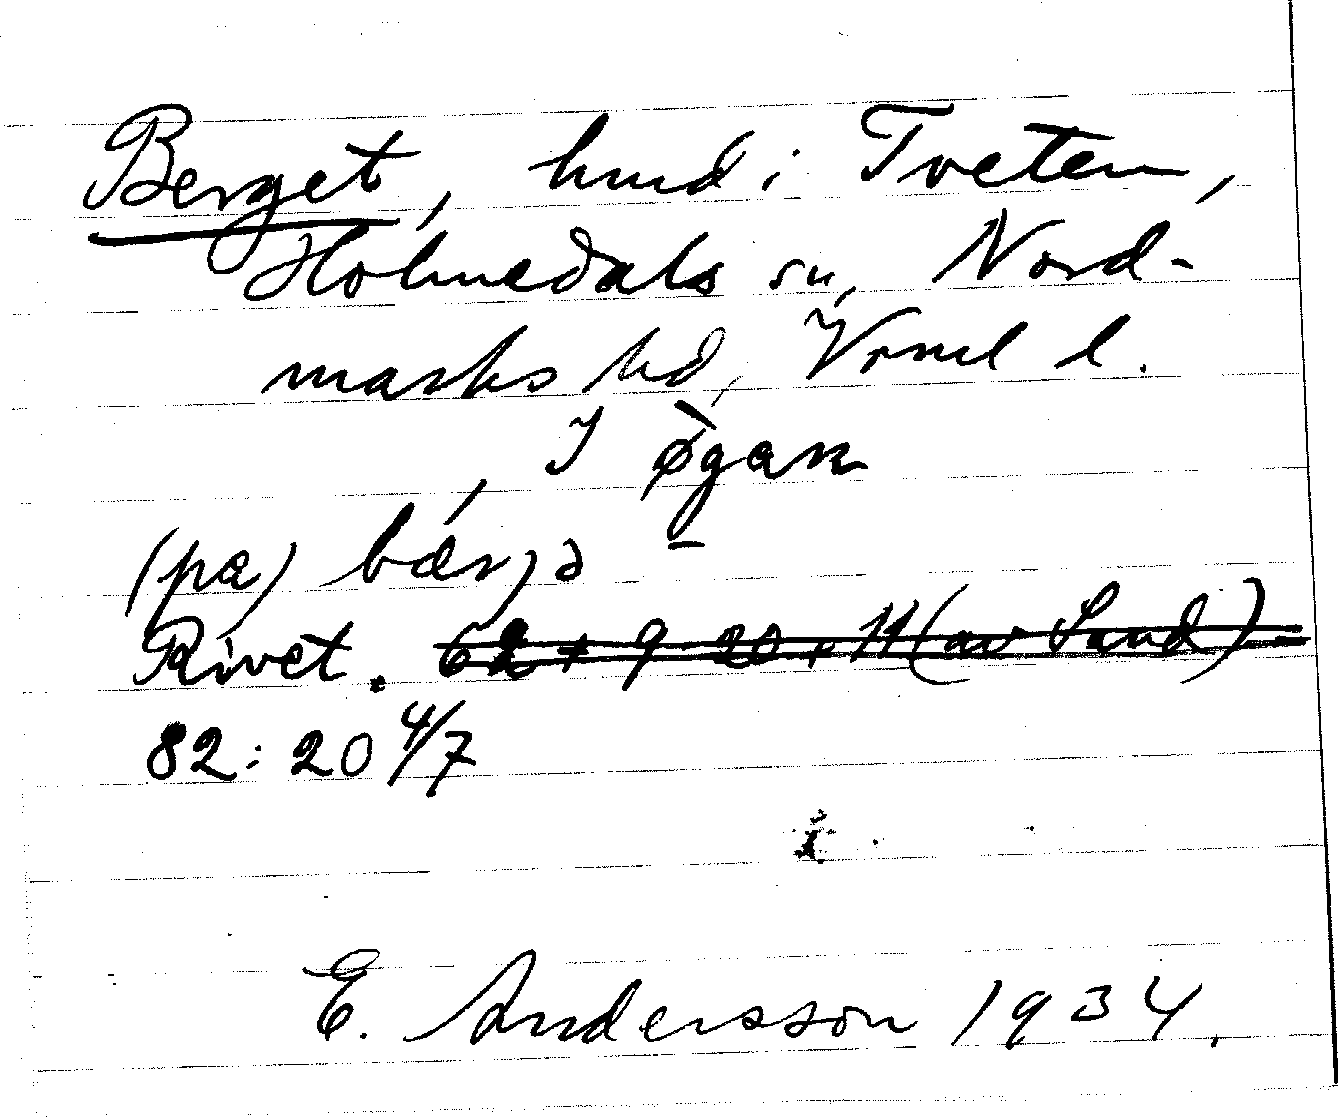 Berget, hmd i Tveten,
Holmedals sn, Nord-
marks hd, Vrml l.
I øgan
(pa) bærjə
Rivet. 62 + 9 20 + 11 (av Sund)
82: 20 4/7
E. Andersson 1934.